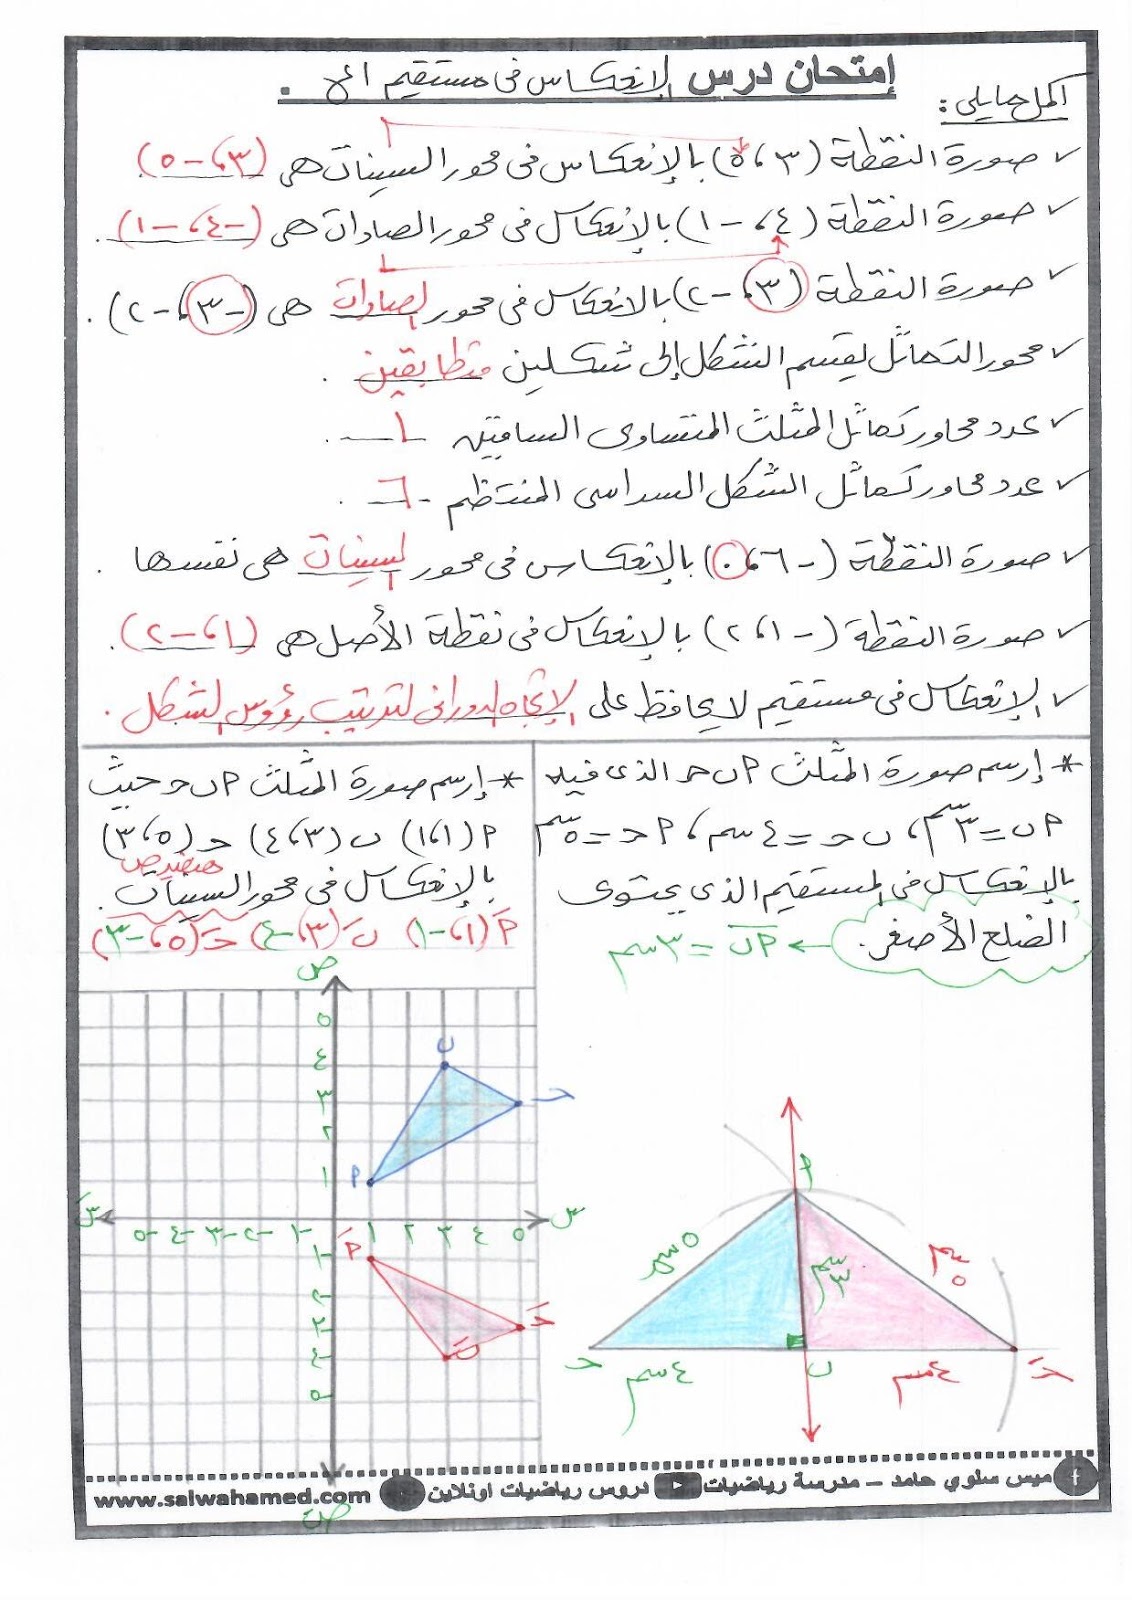 إمتحان درس الإنعكاس فى مستقيم
أكمل مايلى :
✓ صورة النقطة (٣ ، ٥) بالإنعكاس فى محور السينات هى (٣ ، -٥)
✓ صورة النقطة (٤ ، -١) بالإنعكاس فى محور الصادات هى (-٤ ، -١) .
✓ صورة النقطة (٣ ، -٢) بالانعكاس فى محور الصادات هى (-٣ ، -٢) .
✓ محور التماثل يقسم الشكل إلى شكلين متطابقين .
✓ عدد محاور تماثل المثلث المتساوى الساقين ١ .
✓ عدد محاور تماثل الشكل السداسى المنتظم ٦ .
✓ صورة النقطة (-٦ ، ٠) بالإنعكاس فى محور السينات هى نفسها .
✓ صورة النقطة (-١ ، ٢) بالإنعكاس فى نقطة الأصل هى (١ ، -٢) .
✓ الإنعكاس فى مستقيم لا يحافظ على الإتجاه الدورانى لترتيب رؤوس الشكل .
* إرسم صورة المثلث أ ب ح الذى فيه
أ ب = ٣سم ، ب ح = ٤ سم ، أ ح = ٥سم
بالإنعكاس فى المستقيم الذى يحتوى
الضلع الأصغر . ← أ ب = ٣ سم
* إرسم صورة المثلث أ ب ح حيث
أ (١ ، ١) ب (٣ ، ٤) ح (٥ ، ٣)
بالإنعكاس فى محور السينات .
أَ (١ ، -١) بَ (٣ ، -٤) حَ (٥ ، -٣)
ص
٥
٤
ب
٣ ح
٢
١ أ
سَ -٥ -٤ -٣ -٢ -١ ١ ٢ ٣ ٤ ٥ س
-١ أَ
-٢
-٣ حَ
-٤ بَ
-٥
صَ
أ
٥سم ٣سم ٥سم
ح ب حَ
٤سم ٤سم
ميس سلوي حامد – مدرسة رياضيات دروس رياضيات اونلاين www.salwahamed.com